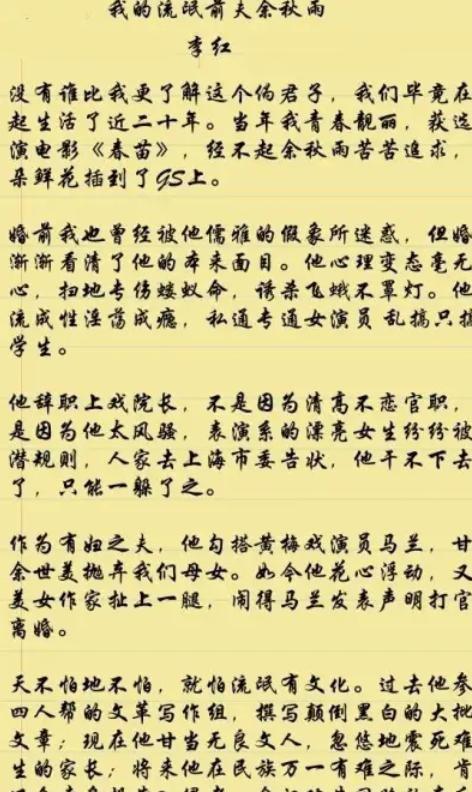 我的流氓前夫余秋雨
李红
没有谁比我更了解这个伪君子，我们毕竟在
起生活了近二十年。当年我青春靓丽，获选
演电影《春苗》，经不起余秋雨苦苦追求，
朵鲜花插到了GS上。
婚前我也曾经被他儒雅的假象所迷惑，但婚
渐渐看清了他的本来面目。他心理变态毫无
心，扫地专伤蝼蚁命，诱杀飞蛾不罩灯。他
流成性淫荡成瘾，私通专通女演员乱搞只搞
学生。
他辞职上戏院长，不是因为清高不恋官职，
是因为他太风骚，表演系的漂亮女生纷纷被
潜规则，人家去上海市委告状，他干不下去
了，只能一躲了之。
作为有妇之夫，他勾搭黄梅戏演员马兰，甘
余世美抛弃我们母女。如今他花心浮动，又
美女作家扯上一腿，闹得马兰发表声明打官
离婚。
天不怕地不怕，就怕流氓有文化。过去他参
四人帮的文革写作组，撰写颠倒黑白的大批
文章；现在他甘当无良文人，忽悠地震死难
生的家长；将来他在民族万一有难之际，肯